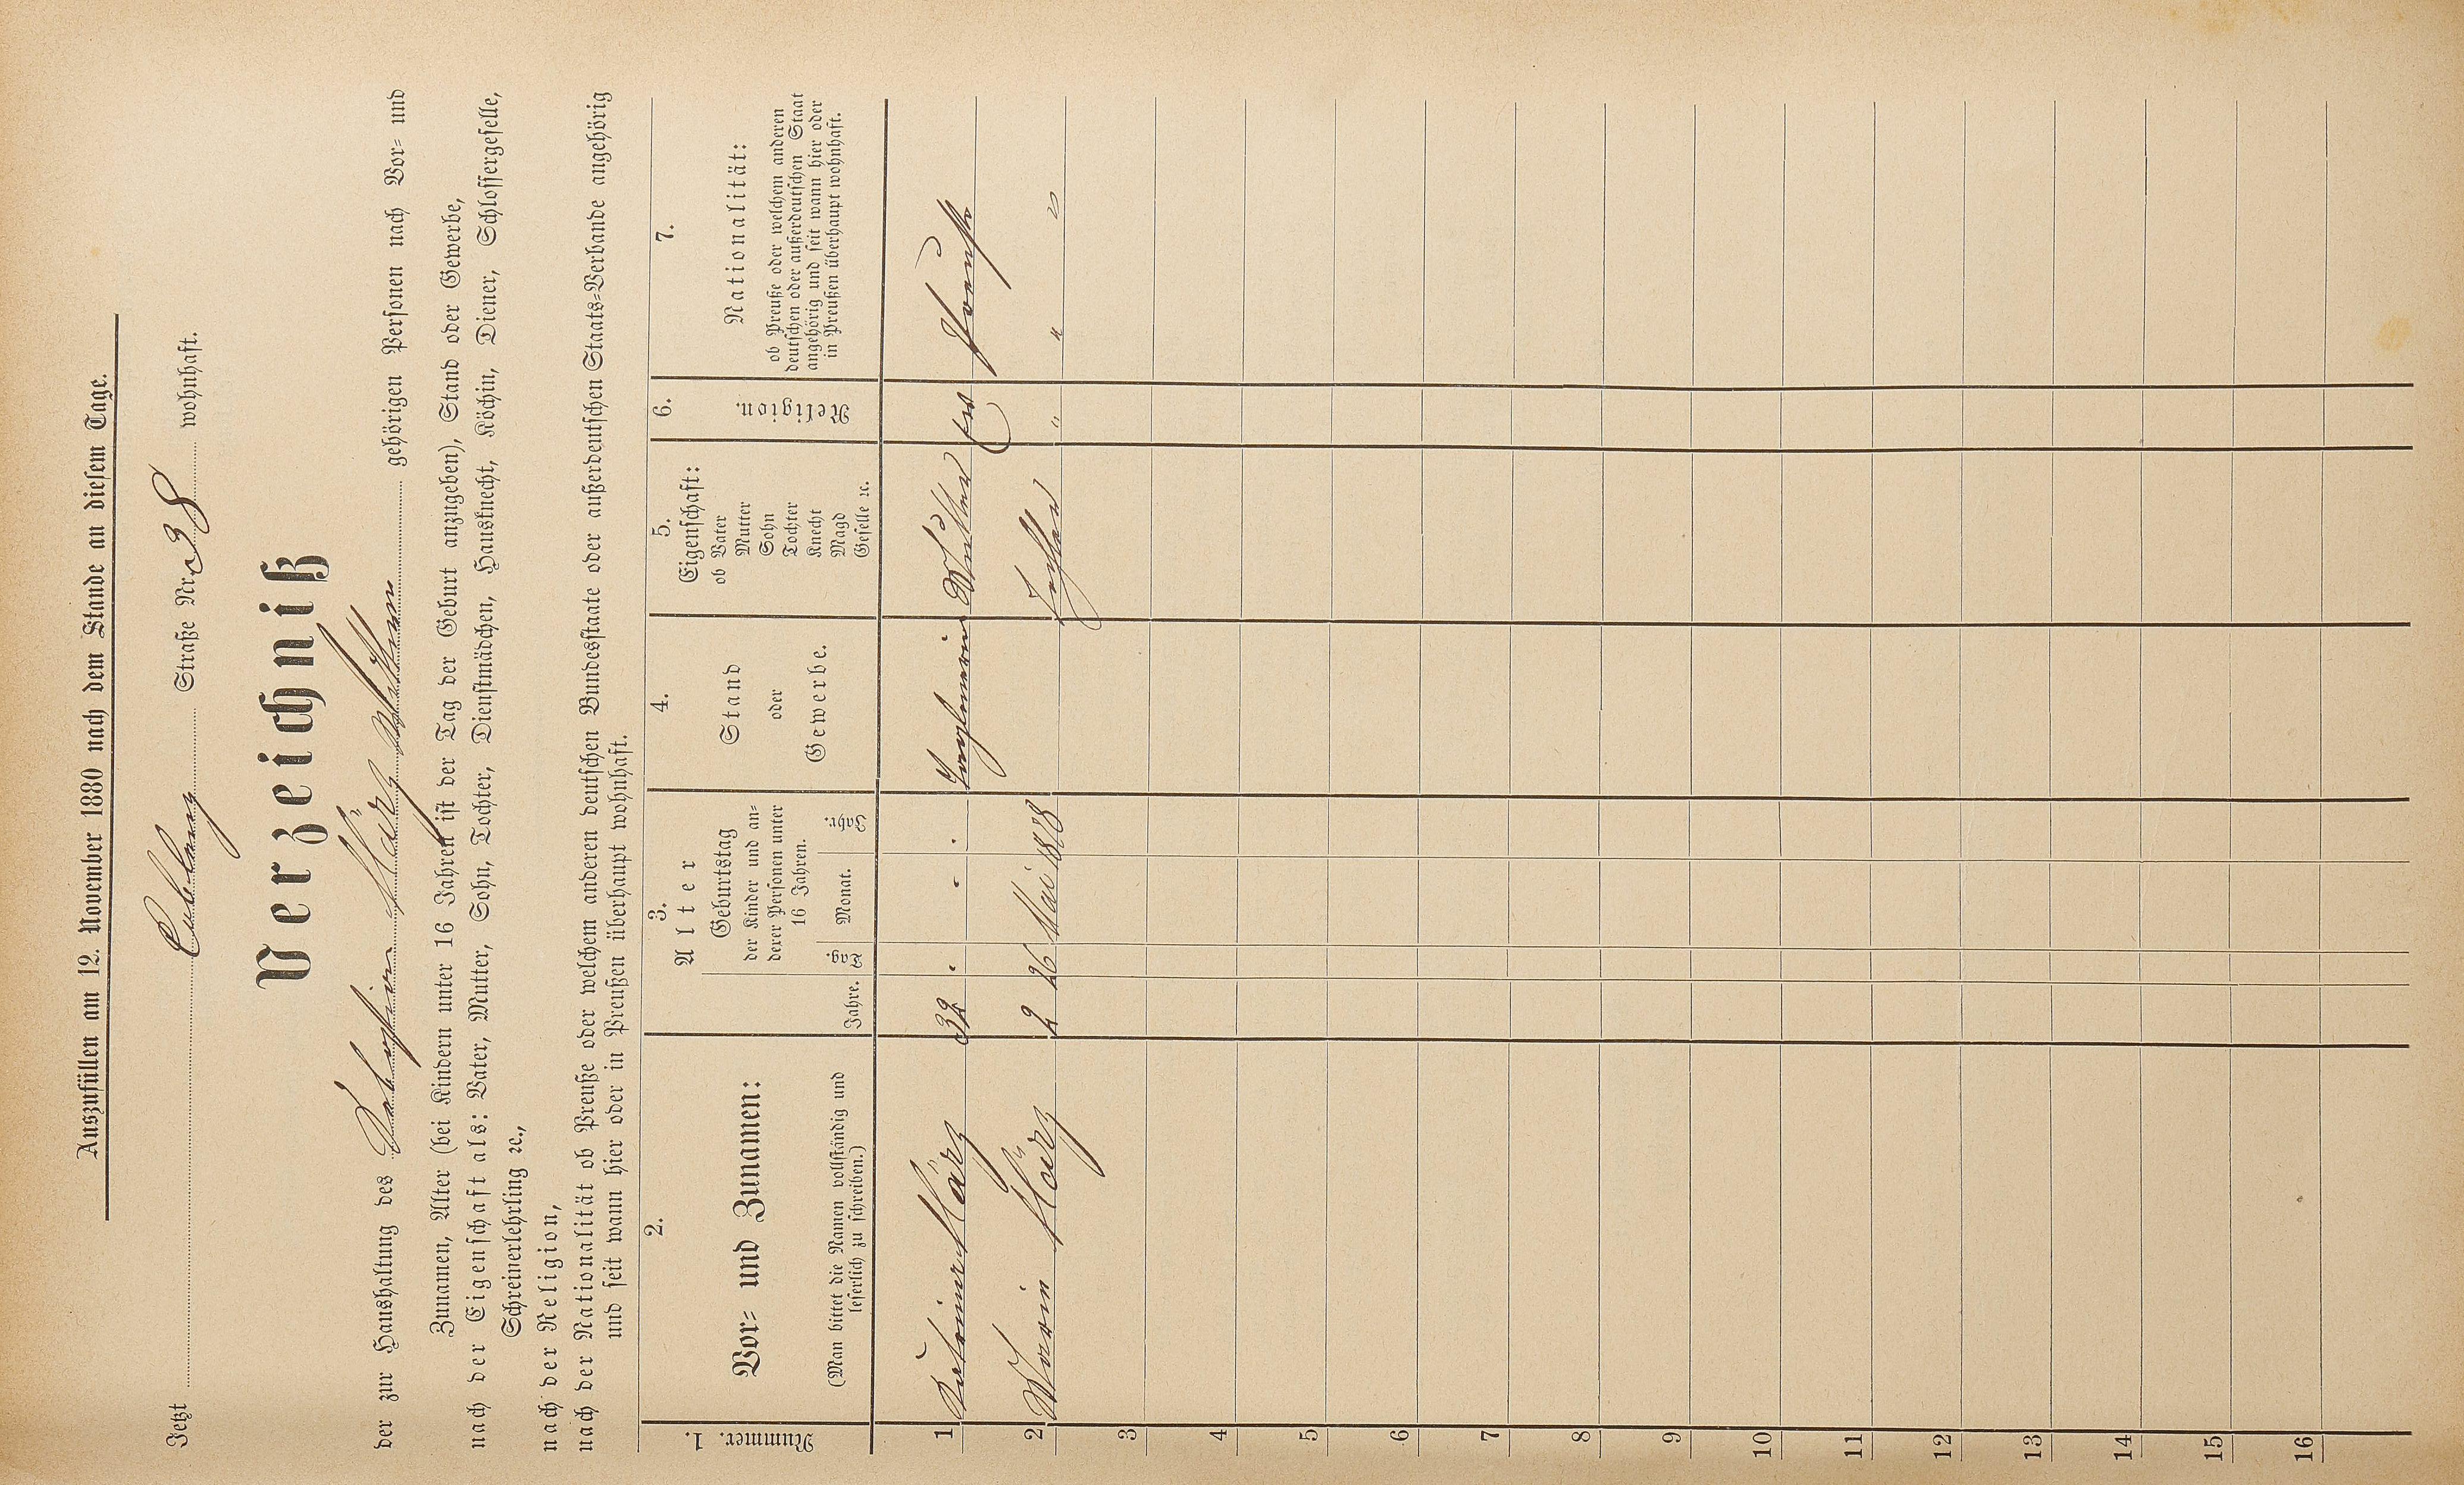 Auszufüllen am 12. November 1880 nach dem Stande an diesem Tage.
Jetzt Straße Nr. 38 wohnhaft.
Verzeichniß
der zur Haushaltung des März Wittwe gehörigen Personen nach Vor- und
Zunamen, Alter (bei Kindern unter 16 Jahren ist der Tag der Geburt anzugeben), Stand oder Gewerbe,
nach der Eigenschaft als: Vater, Mutter, Sohn, Tochter, Dienstmädchen, Hausknecht, Köchin, Diener, Schlossergeselle,
Schreinerlehrling ꝛc.,
nach der Religion,
nach der Nationalität ob Preuße oder welchem anderen deutschen Bundesstaate oder außerdeutschen Staats-Verbande angehörig
und seit wann hier oder in Preußen überhaupt wohnhaft.
1.
Nummer.
2.
Vor- und Zunamen:
(Man bittet die Namen vollständig und
leserlich zu schreiben.)
3.
Alter
Jahre.
Geburtstag
der Kinder und an-
derer Personen unter
16 Jahren.
Tag. Monat. Jahr.
4.
Stand
oder
Gewerbe.
5.
Eigenschaft:
ob Vater
Mutter
Sohn
Tochter
Knecht
Magd
Geselle ꝛc.
6.
Religion.
7.
Nationalität:
ob Preuße oder welchem anderen
deutschen oder außerdeutschen Staat
angehörig und seit wann hier oder
in Preußen überhaupt wohnhaft.
1 März 32 . . . Taglöhnerin Mutter ev Preuße
2 Maria März 2 26 Mai 1878 Tochter " " "
3
4
5
6
7
8
9
10
11
12
13
14
15
16